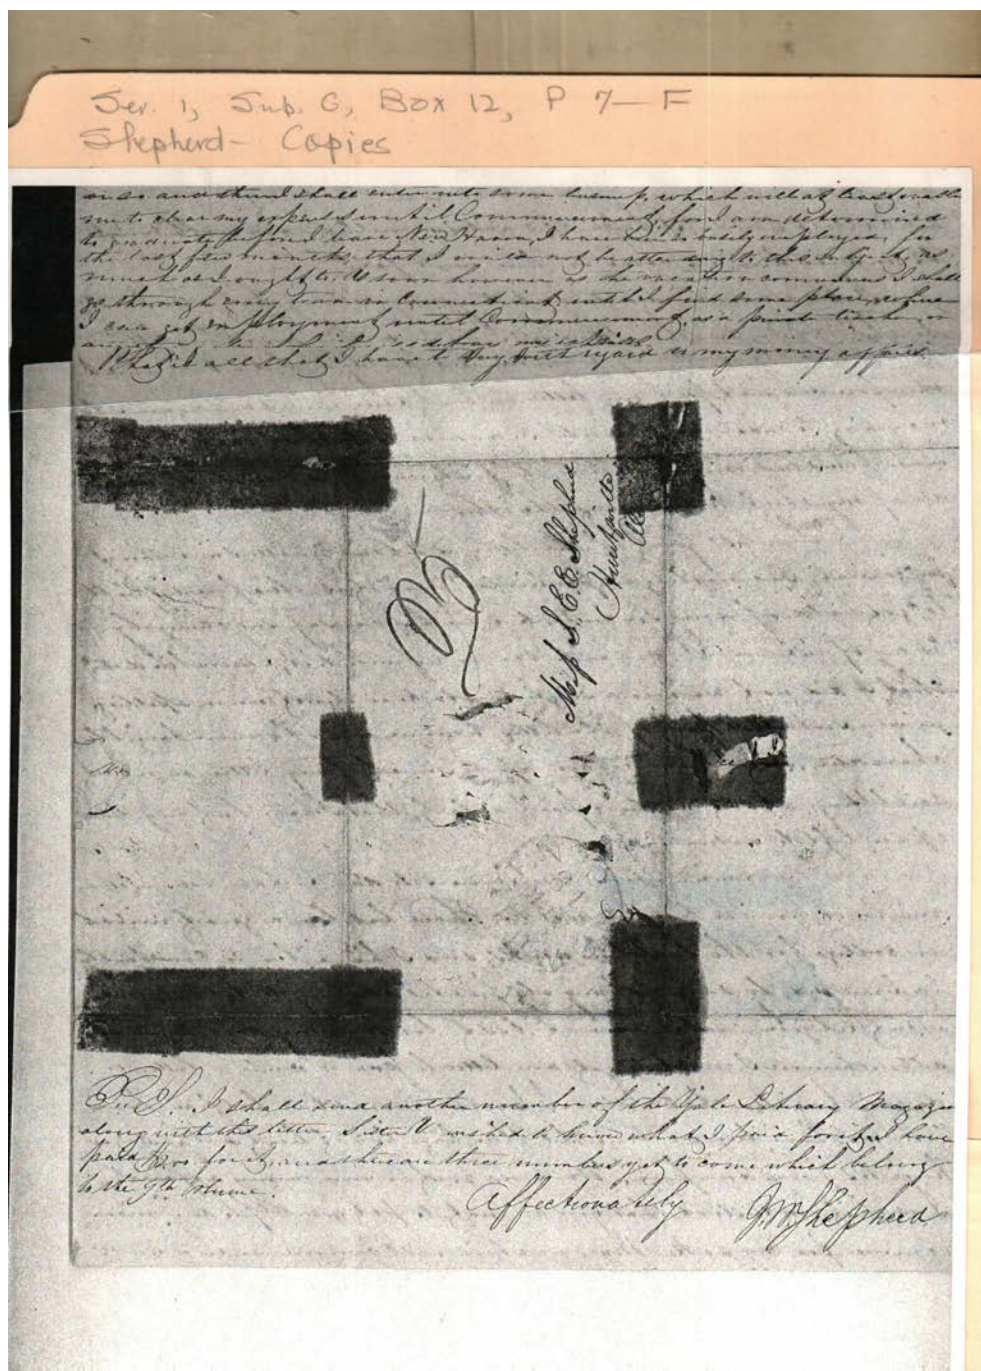 Ser. 1, Sub. G, Box 12, P 7 — F
Shepherd - Copies
or so and then I shall enter into some business, which will at least enable
me to clear my expenses until Commencement, for I am determined
to graduate before I leave New Haven, I have been so busily employed, for
the last few months, that I could not be attending to this subject, as
much as I ought to. As soon however as the vacation commences I shall
go through every town in Connecticut until I find some place, where
I can get employment until Commencement, as a private teacher or
That is all that I have to say with regard to my money affairs.
Miss S. E. E. Shepherd
Huntsville
Ala
P. S. I shall send another number of the Yale Literary Magazine
along with this letter. Sister V. wished to know what I paid for it, I have
paid for it, and there are three numbers yet to come which belong
to the 9th Volume.
Affectionately J. W. Shepherd